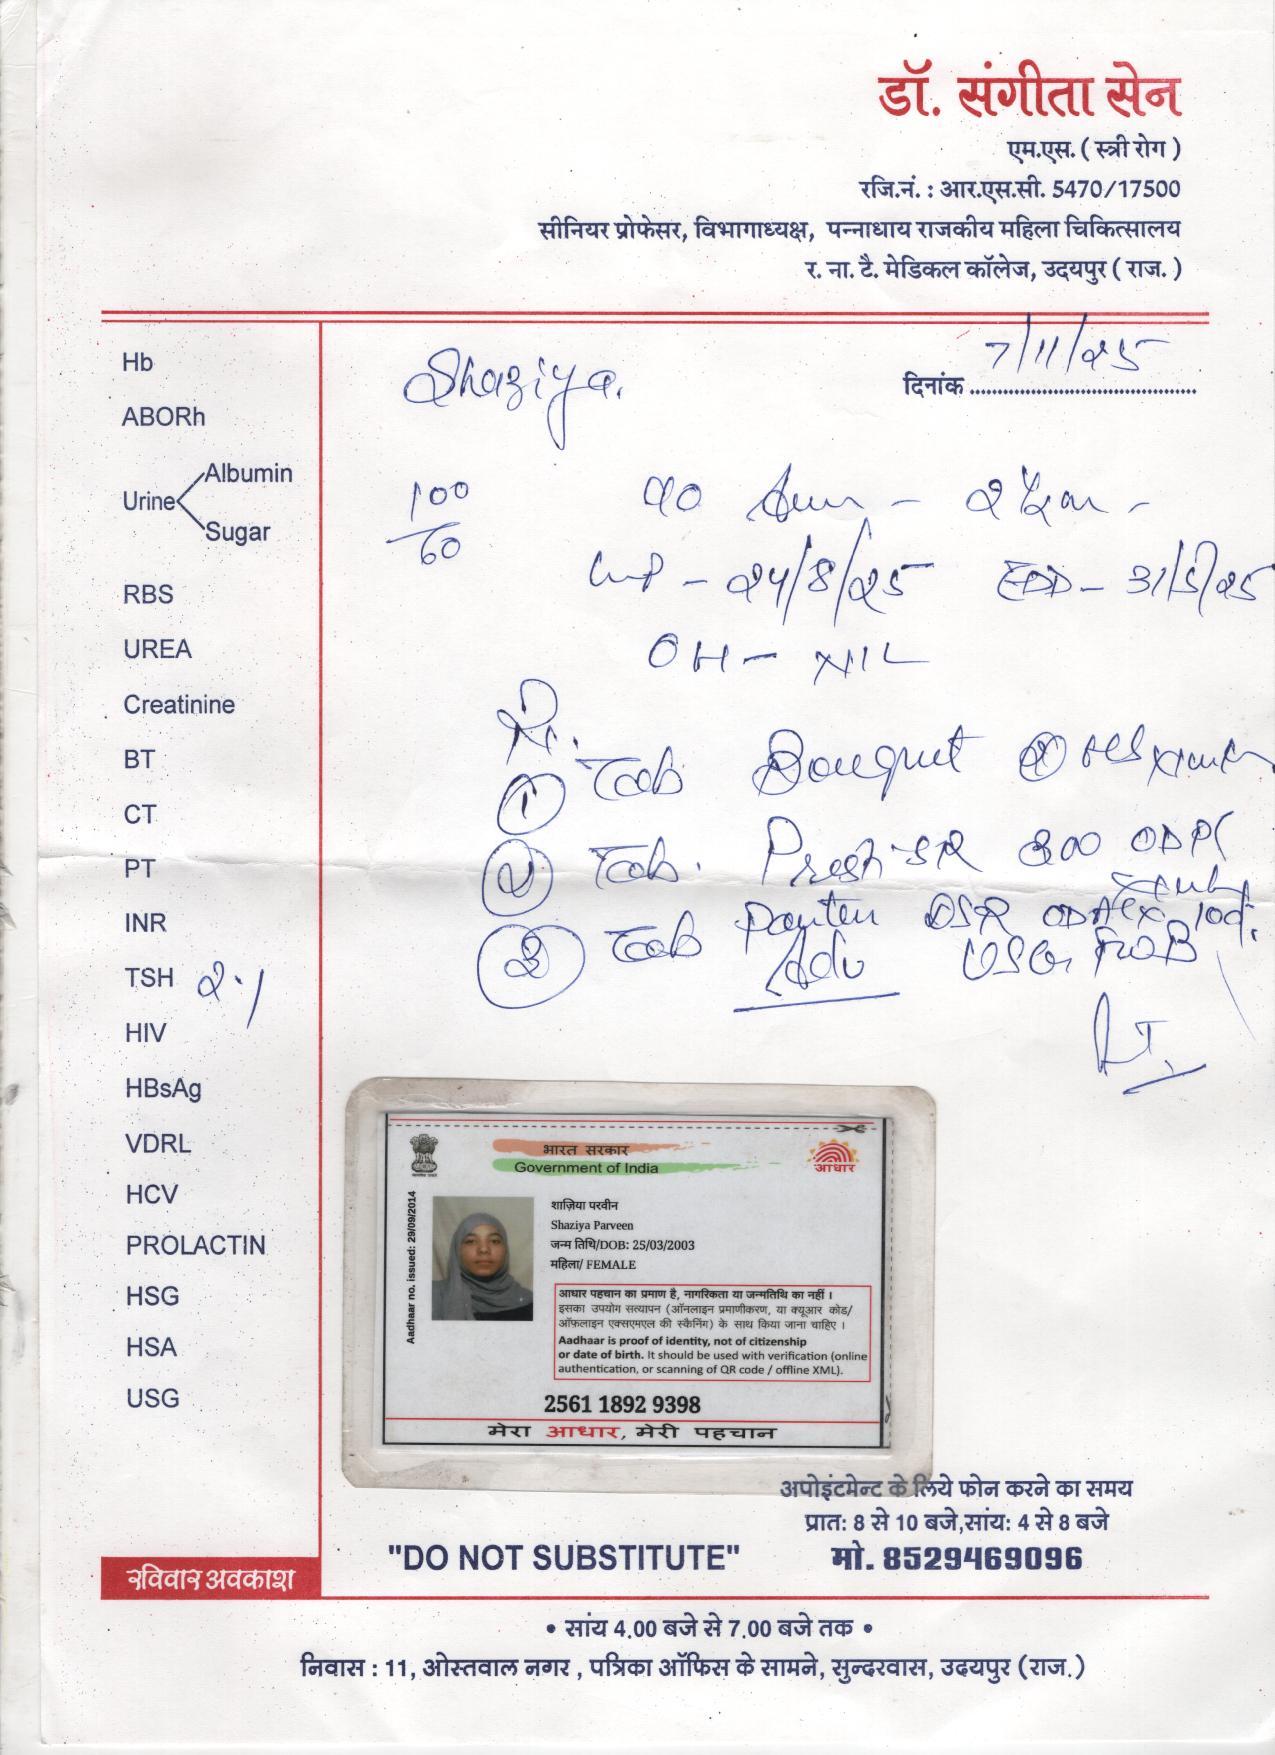 डॉ. संगीता सेन
एम.एस. ( स्त्री रोग )
रजि.नं. : आर.एस.सी. 5470/17500
सीनियर प्रोफेसर, विभागाध्यक्ष, पन्नाधाय राजकीय महिला चिकित्सालय
र. ना. टै. मेडिकल कॉलेज, उदयपुर ( राज. )
दिनांक 7/11/25
Shaziya.
Hb
ABORh
Urine
Albumin
Sugar
RBS
UREA
Creatinine
BT
CT
PT
INR
TSH 2.1
HIV
HBsAg
VDRL
HCV
PROLACTIN
HSG
HSA
USG
100
60
2 Year -
LMP - 24/8/25 EDD - 31/5/25
OH - NIL
① Tab Bouquet HS
② Tab. SR 300 OD
③ Tab DSR 10d.
Adv USG
भारत सरकार
Government of India
आधार
Aadhaar no. issued: 29/09/2014
शाज़िया परवीन
Shaziya Parveen
जन्म तिथि/DOB: 25/03/2003
महिला/ FEMALE
आधार पहचान का प्रमाण है, नागरिकता या जन्मतिथि का नहीं ।
इसका उपयोग सत्यापन (ऑनलाइन प्रमाणीकरण, या क्यूआर कोड/
ऑफ़लाइन एक्सएमएल की स्कैनिंग) के साथ किया जाना चाहिए ।
Aadhaar is proof of identity, not of citizenship
or date of birth. It should be used with verification (online
authentication, or scanning of QR code / offline XML).
2561 1892 9398
मेरा आधार, मेरी पहचान
अपोइंटमेन्ट के लिये फोन करने का समय
प्रात: 8 से 10 बजे,सांय: 4 से 8 बजे
"DO NOT SUBSTITUTE"
मो. 8529469096
रविवार अवकाश
• सांय 4.00 बजे से 7.00 बजे तक •
निवास : 11, ओस्तवाल नगर , पत्रिका ऑफिस के सामने, सुन्दरवास, उदयपुर (राज.)